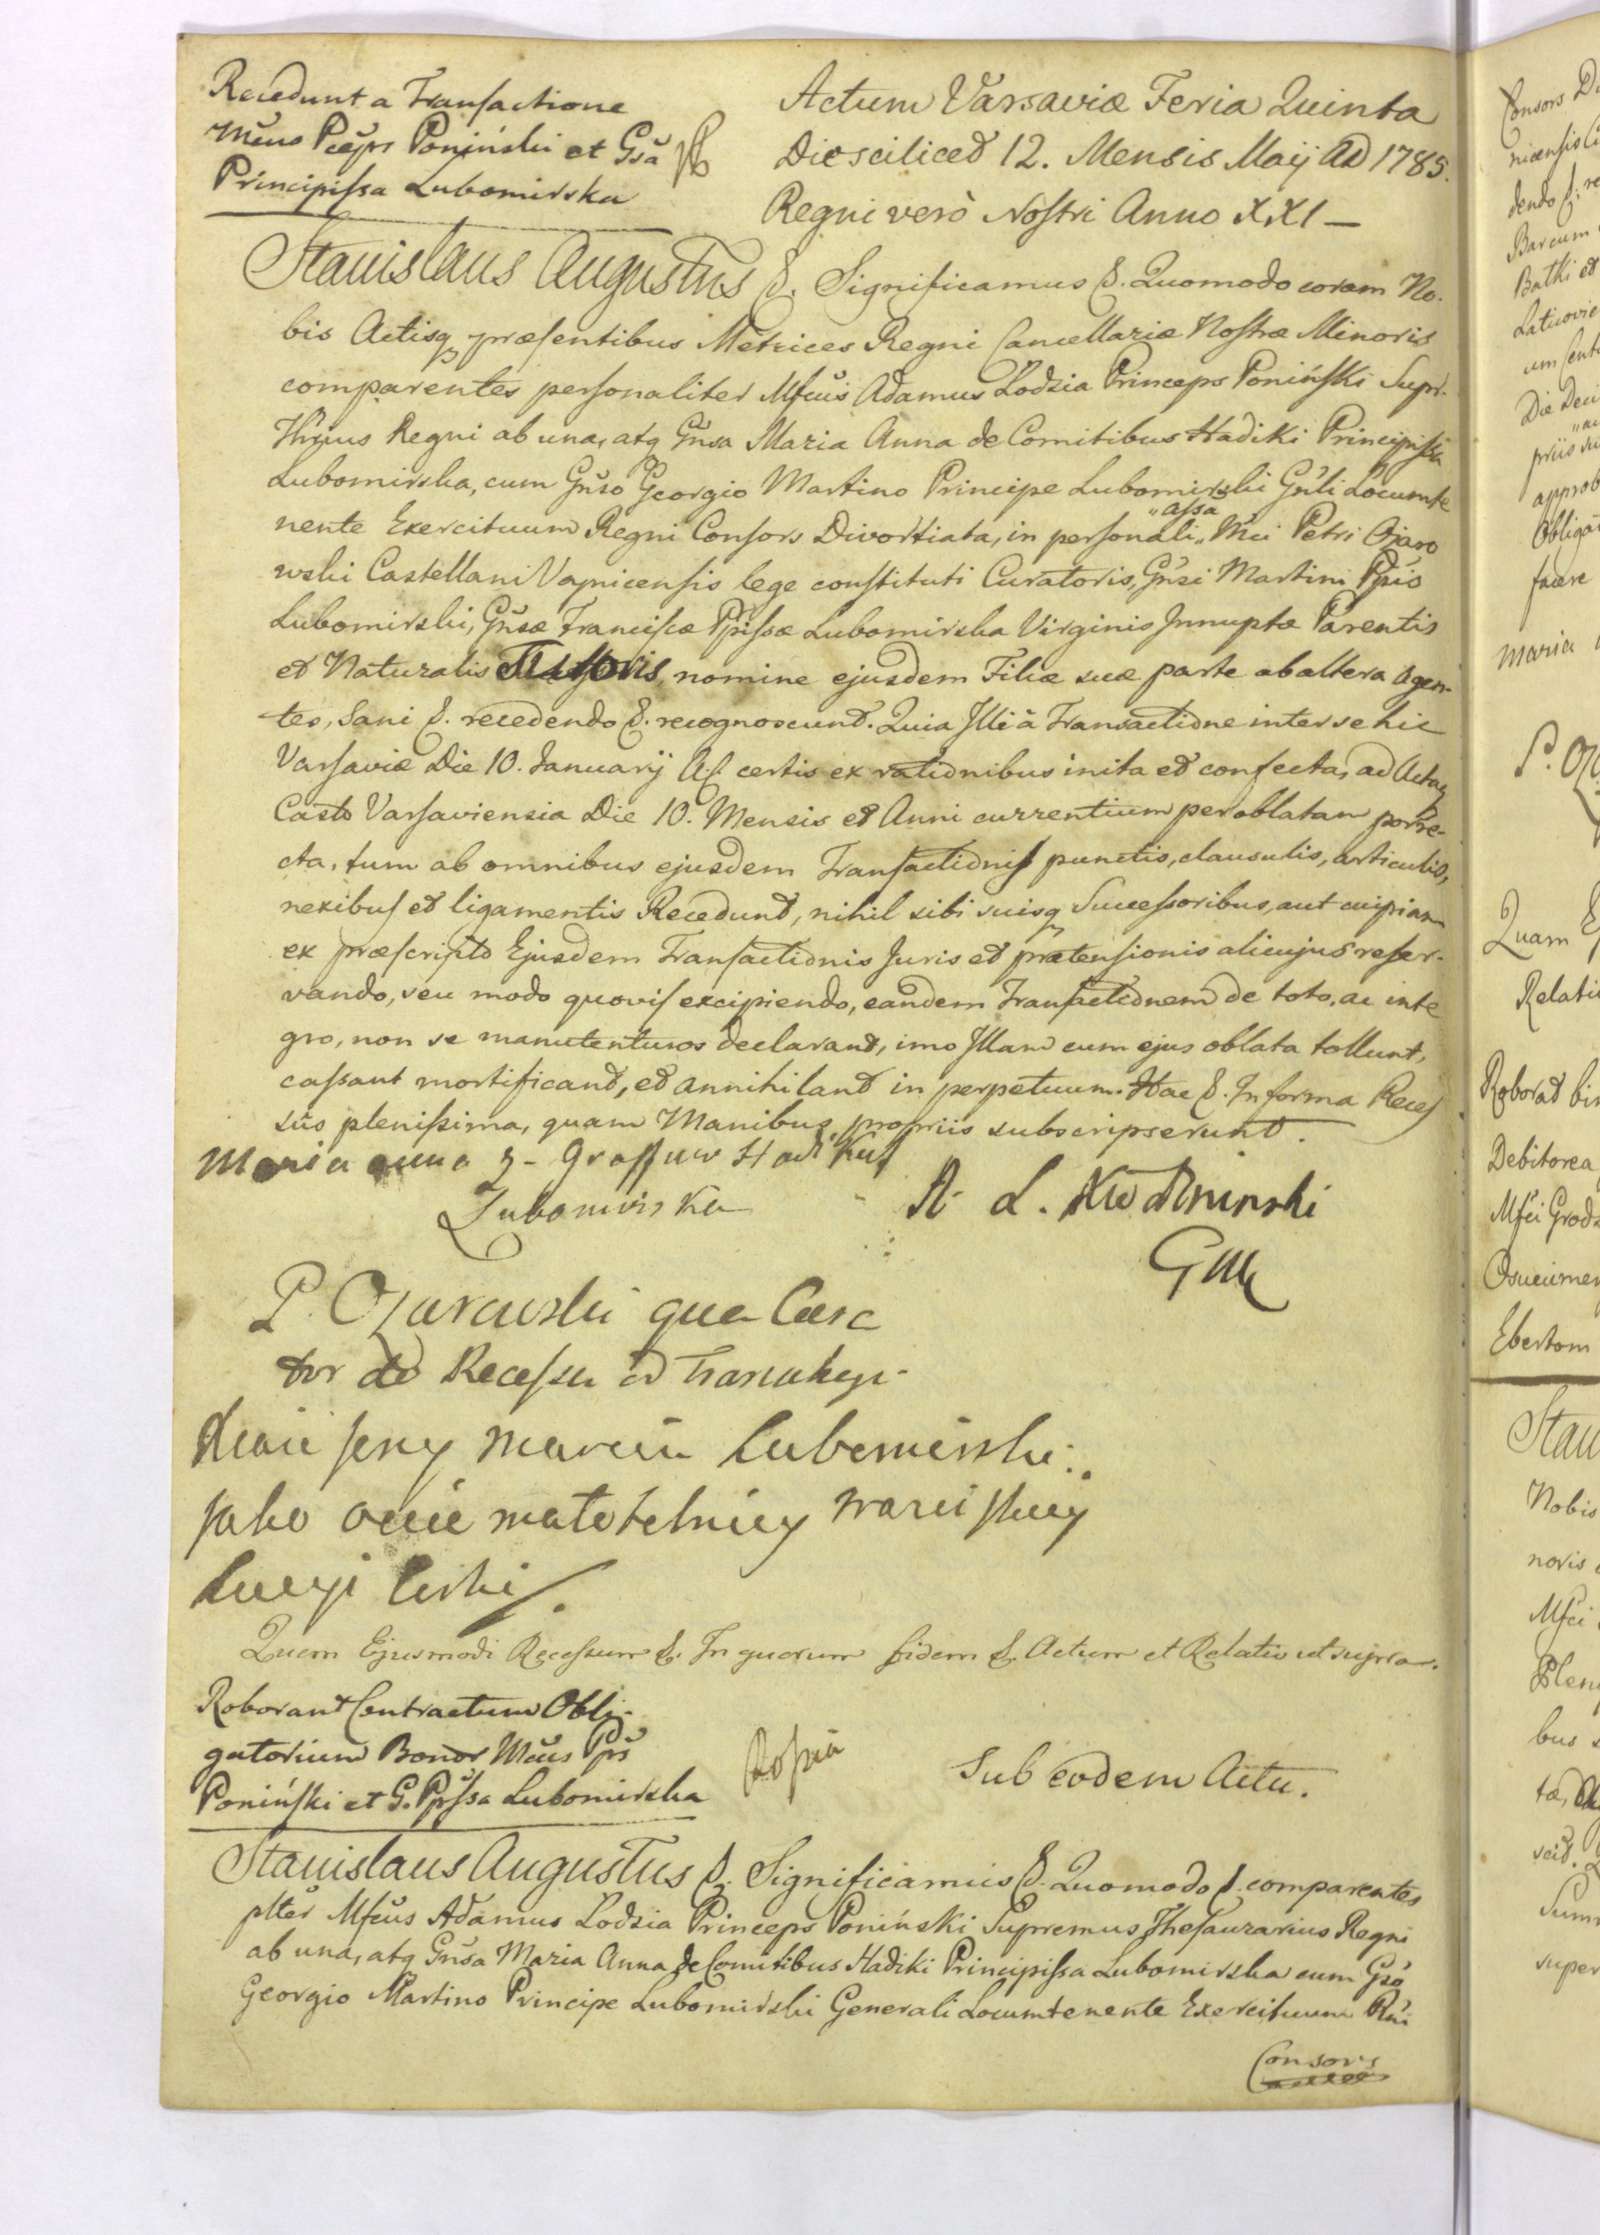 Recedunt a Transactione
Mcus Pceps Poniński et Gsa
Principissa Lubomirska
Actum Varsaviæ Feria Quinta
Die scilicet 12. Mensis Maij AD 1785.
Regni verò Nostri Anno XXI —
Stanislaus Augustus &. Significamus &. Quomodo coram No-
bis Actisq præsentibus Metrices Regni Cancellariæ Nostræ Minoris
comparentes personaliter Mfcus Adamus Lodzia Princeps Poniński Supr.
Thrius Regni ab una, atq Gnsa Maria Anna de Comitibus Hadiki Principissa
Lubomirska, cum Gnso Georgio Martino Principe Lubomirski Gnli Locumte
nente Exercituum Regni Consors Divortiata, in personali „assa„ Mci Petri Ożaro
wski Castellani Voynicensis lege constituti Curatoris, Gnsi Martini Ppis
Lubomirski, Gnsæ Franciscæ Ppissæ Lubomirska Virginis Innuptæ Parentis
et Naturalis Tutoris nomine ejusdem Filiæ suæ parte ab altera Agen-
tes, Sani &. recedendo &. recognoscunt. Quia Illi à Transactione inter se hic
Varsaviæ Die 10. Januarij A. c. certis ex rationibus inita et confecta, ad Actaq
Casto Varsaviensia Die 10. Mensis et Anni currentium per oblatam porre-
cta, tum ab omnibus ejusdem Transactionis punctis, clausulis, articulis,
nexibus et ligamentis Recedunt, nihil sibi suisq Successoribus, aut cuipiam
ex præscripto Ejusdem Transactionis Juris et prætensionis alicujus reser-
vando, seu modo quovis excipiendo, eandem Transactionem de toto, ac inte
gro, non se manutenturos declarant, imo Illam cum ejus oblata tollunt,
cassant mortificant, et annihilant in perpetuum. Hac &. In forma Reces
sûs plenissima, quam Manibus propriis subscripserunt.
Maria anna z - Graffuw Hadikuf
Lubomirska
A. L. Xże Poninski
P. Ożarowski qua Cura
tor do Recessu od Transakcyi
Xiąże Jerzy Marcin Lubomirski
jako ociec małoletniey
Quem Ejusmodi Recessum &. In quorum fidem &. Actum et Relatio ut supra.
Roborant Contractum Obli-
gatorium Bonor Mcus Pps
Poniński et G. Ppssa Lubomirska
Sub eodem Actu.
Stanislaus Augustus &. Significamus &. Quomodo &. comparentes
plter Mfcus Adamus Lodzia Princeps Poniński Supremus Thesaurarius Regni
ab una, atq Gnsa Maria Anna de Comitibus Hadzki Principissa Lubomirska cum Gso
Georgio Martino Principe Lubomirski Generali Locumtenente Exercituum Rni
Consors